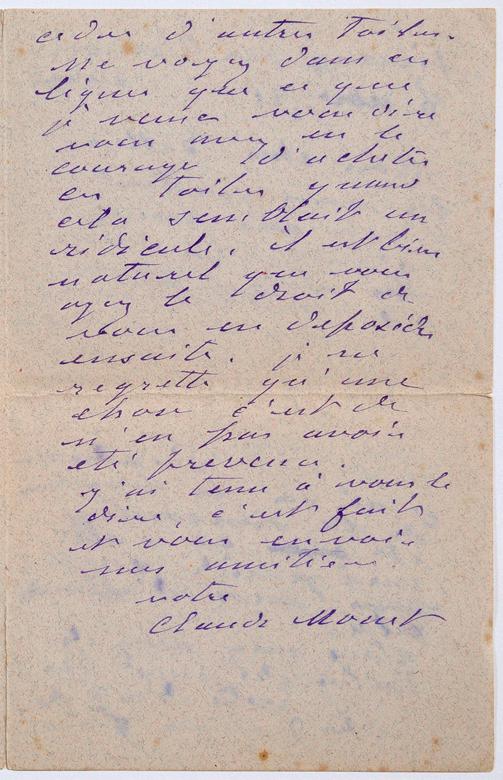 céder d'autres Toiles.
Ne voyez dans ces
lignes que ce que
je veux vous dire
vous avez eu le
courage d'acheter
ces Toiles quand
cela semblait un
ridicule, il est bien
naturel que vous
ayez le droit de
vous en deposséder
ensuite. je ne
regrette qu'une
chose c'est de
n'en pas avoir
été prevenu.
j'ai tenu à vous le
dire, c'est fait
et vous envoie
mes amitiés
votre
Claude Monet